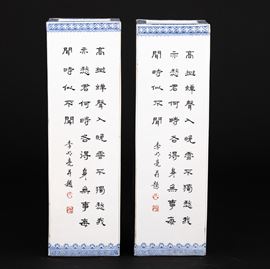 高樹蟬聲入晚雲不獨愁我
亦愁君何時各得身無事每
聞時似不聞
李明亮
高樹蟬聲入晚雲不獨愁我
亦愁君何時各得身無事每
聞時似不聞
李明亮